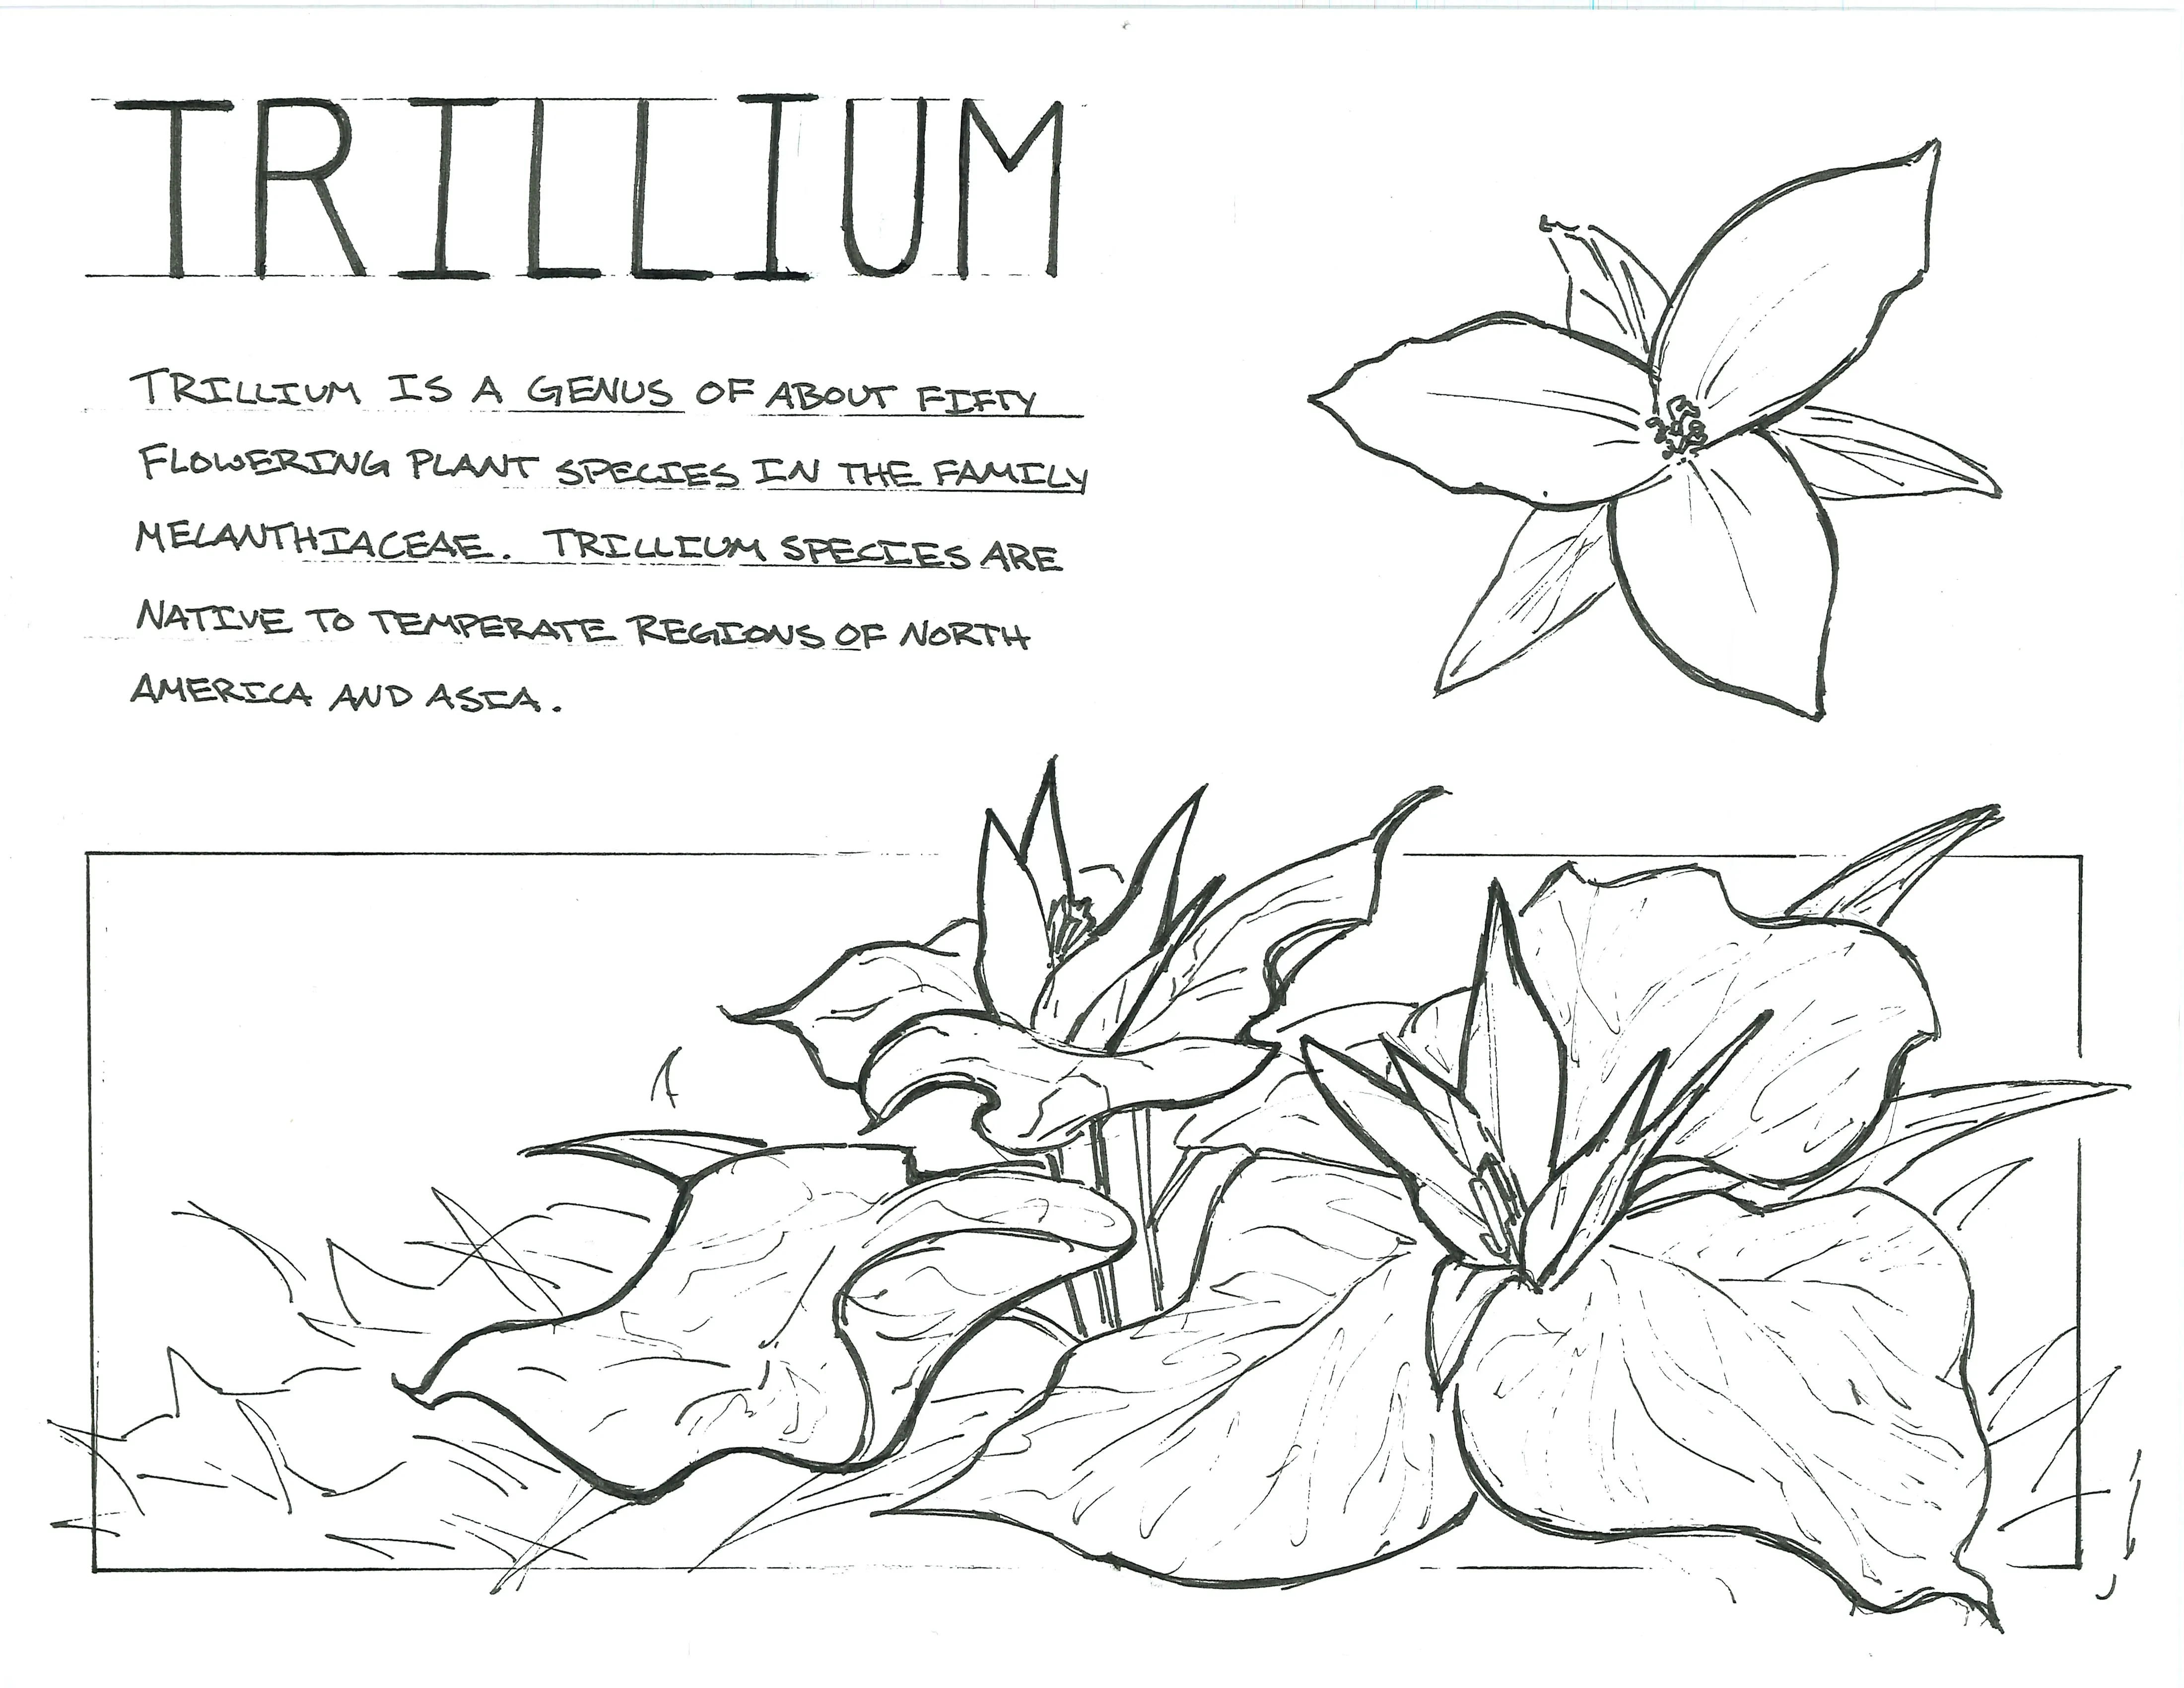 TRILLIUM
TRILLIUM IS A GENUS OF ABOUT FIFTY
FLOWERING PLANT SPECIES IN THE FAMILY
MELANTHIACEAE. TRILLIUM SPECIES ARE
NATIVE TO TEMPERATE REGIONS OF NORTH
AMERICA AND ASIA.